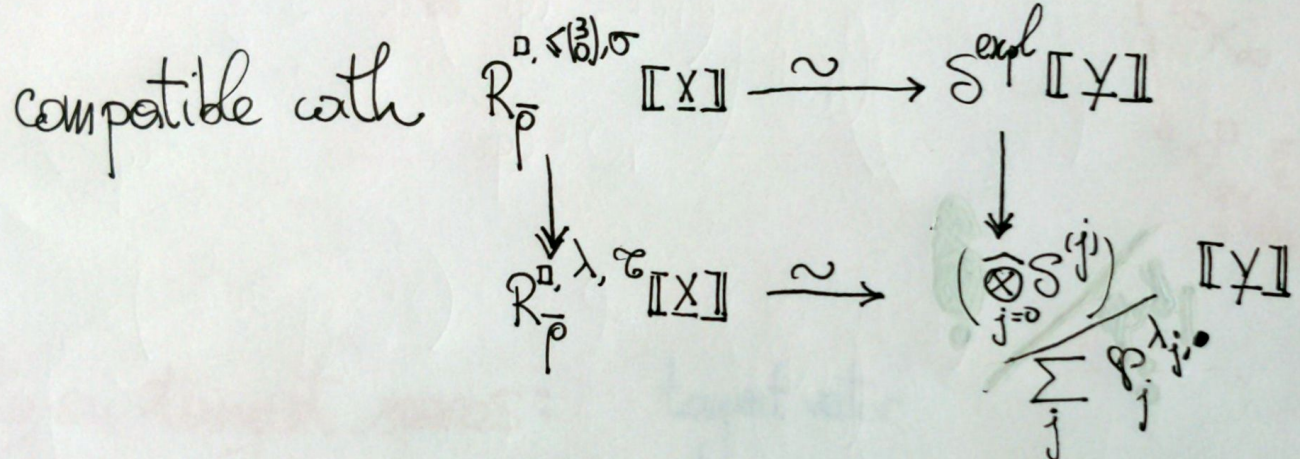 compatible with R_{\overline{ρ}}^{□, ≤(3 0), σ} [[X]] ⟶~ S^{expl} [[Y]]
R_{\overline{ρ}}^{□, λ, τ} [[X]] ⟶~ (⊗̂_{j=0} S^{(j)}) / ∑_j ℘_j^{λ_j, •} [[Y]]